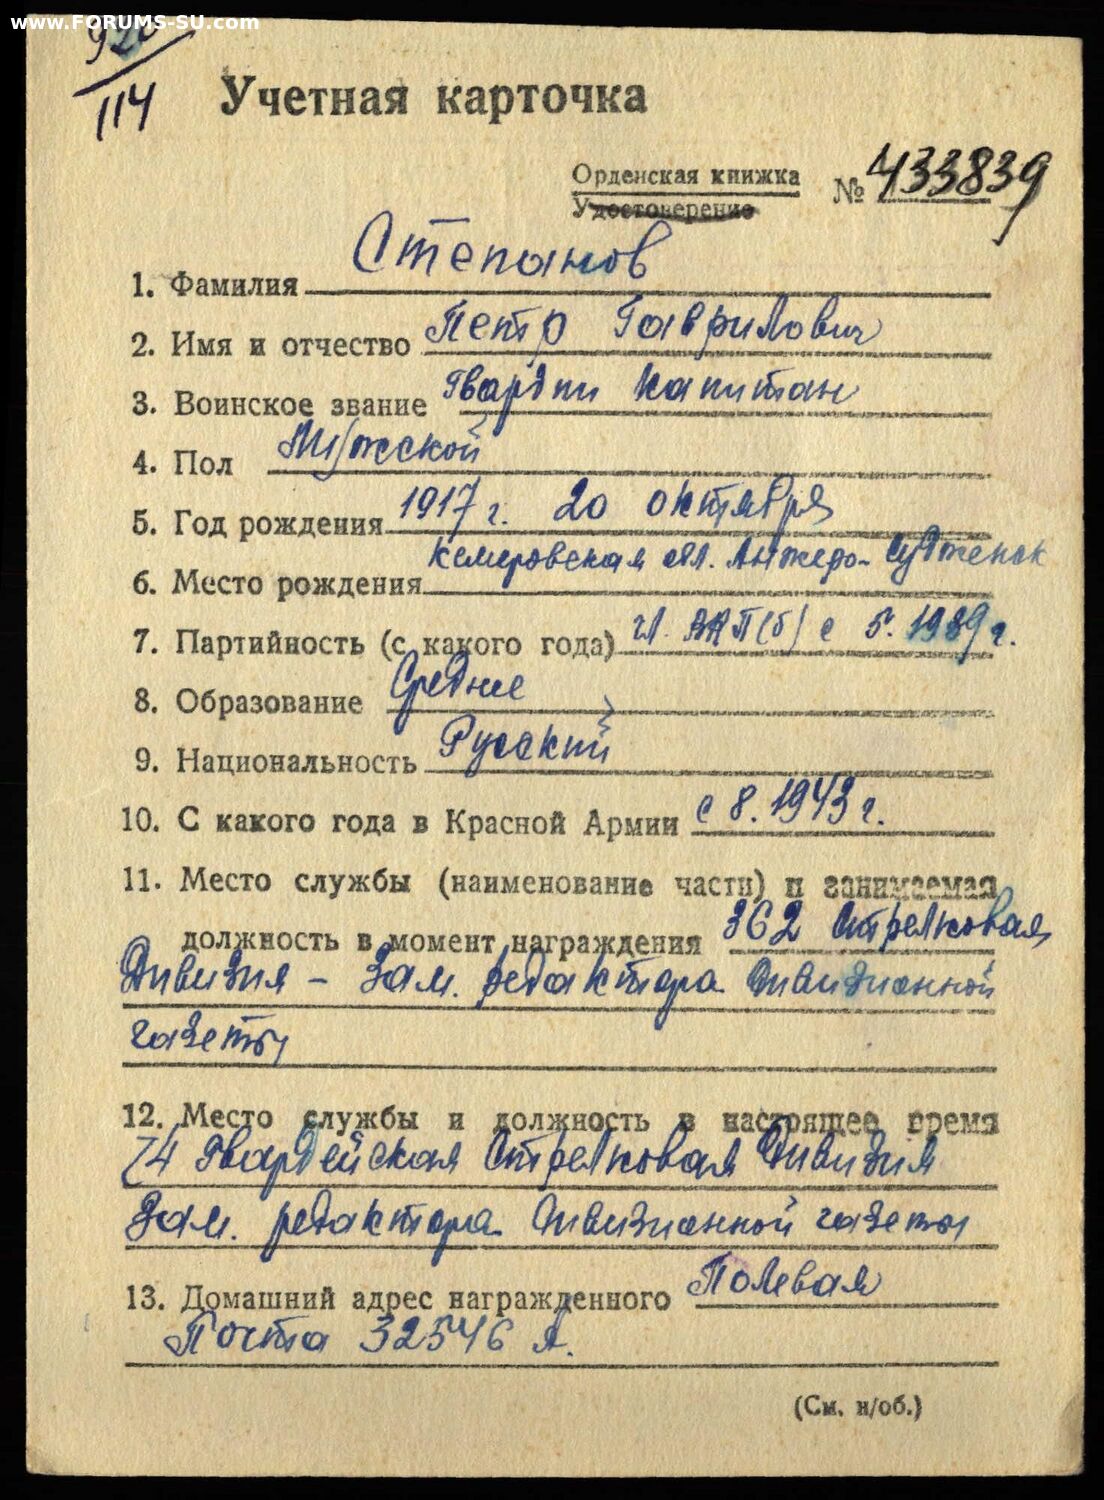 www.FORUMS-SU.com
114
Учетная карточка
Орденская книжка № 433839
Удостоверение
Степанов
1. Фамилия
2. Имя и отчество Петр Гаврилович
3. Воинское звание Гвардии Капитан
4. Пол Мужской
5. Год рождения 1917 г. 20 октября
Кемеровская обл. Анжеро-Судженск
6. Место рождения
7. Партийность (с какого года) чл. ВКП(б) с 5. 1939 г.
8. Образование Среднее
9. Национальность Русский
10. С какого года в Красной Армии с 8. 1943 г.
11. Место службы (наименование части) и занимаемая
должность в момент награждения 362 Стрелковая
Дивизия - Зам. редактора Дивизионной
газеты
12. Место службы и должность в настоящее время
74 Гвардейская Стрелковая Дивизия
Зам. редактора Дивизионной газеты
13. Домашний адрес награжденного Полевая
Почта 32546 А.
(См. н/об.)